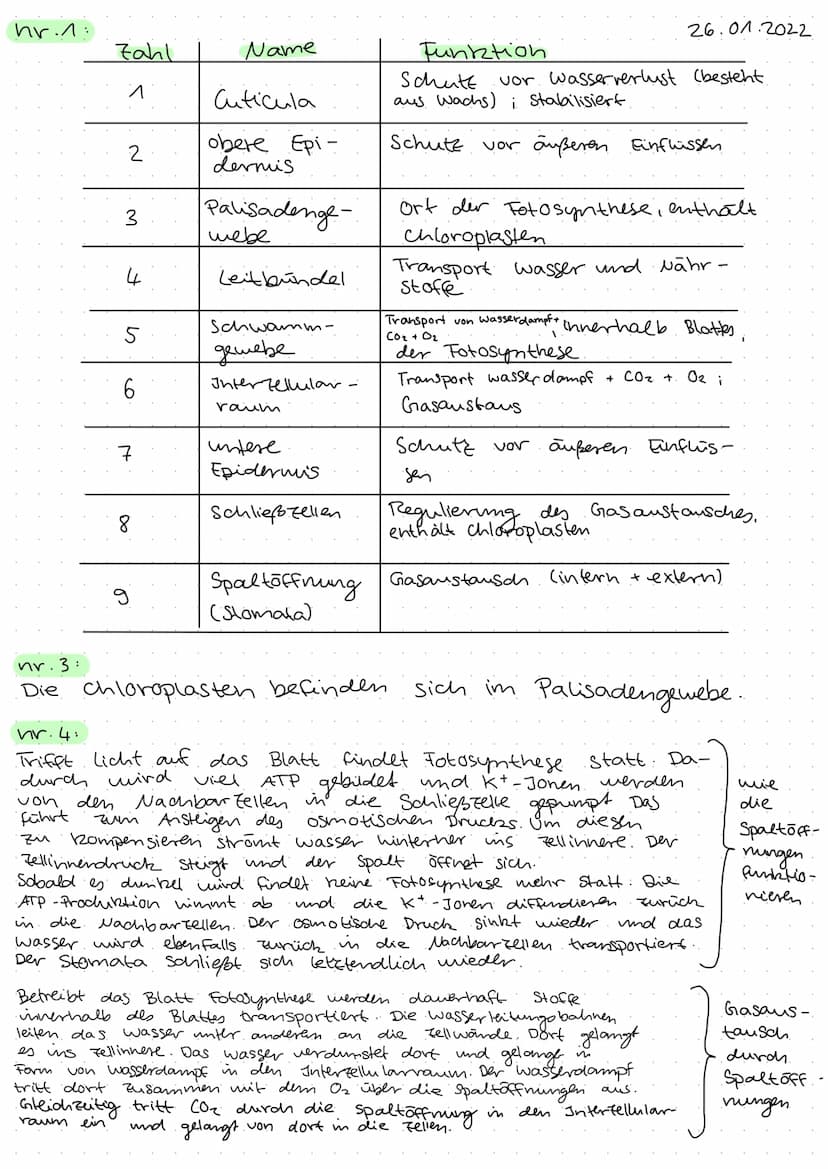 nr.1:
26.01.2022
Zahl Name Funktion
1 Cuticula Schutz vor Wasserverlust (besteht
aus Wachs) ; stabilisiert
2 obere Epi- Schutz vor äußeren Einflüssen
dermis
3 Palisadenge- Ort der Fotosynthese, enthält
webe Chloroplasten
4 Leitbündel Transport Wasser und Nähr-
stoffe
5 Schwamm- Transport von Wasserdampf+ innerhalb Blattes,
CO2 + O2
gewebe der Fotosynthese
6 Interzellular- Transport Wasserdampf + CO2 + O2 ;
raum Gasaustaus
7 untere Schutz vor äußeren Einflüs-
Epidermis sen
8 Schließzellen Regulierung des Gasaustausches,
enthält Chloroplasten
9 Spaltöffnung Gasaustausch (intern + extern)
(Stomata)
nr.3:
Die Chloroplasten befinden sich im Palisadengewebe.
nr.4:
Trifft Licht auf das Blatt findet Fotosynthese statt. Da-
durch wird viel ATP gebildet und K+-Ionen werden
von den Nachbarzellen in die Schließzelle gepumpt. Das
führt zum Ansteigen des osmotischen Drucks. Um diesen
zu kompensieren strömt Wasser hinterher ins Zellinnere. Der
Zellinnendruck steigt und der Spalt öffnet sich.
Sobald es dunkel wird findet keine Fotosynthese mehr statt. Die
ATP-Produktion nimmt ab und die K+-Ionen diffundieren zurück
in die Nachbarzellen. Der osmotische Druck sinkt wieder und das
Wasser wird ebenfalls zurück in die Nachbarzellen transportiert.
Der Stomata schließt sich letztendlich wieder.
wie
die
Spaltöff-
nungen
funktio-
nieren
Betreibt das Blatt Fotosynthese werden dauerhaft Stoffe
innerhalb des Blattes transportiert. Die Wasserleitungsbahnen
leiten das Wasser unter anderen an die Zellwände. Dort gelangt
es ins Zellinnere. Das Wasser verdunstet dort und gelangt in
Form von Wasserdampf in den Interzellularraum. Der Wasserdampf
tritt dort zusammen mit dem O2 über die Spaltöffnungen aus.
Gleichzeitig tritt CO2 durch die Spaltöffnung in den Interzellular-
raum ein und gelangt von dort in die Zellen.
Gasaus-
tausch
durch
Spaltöff-
nungen